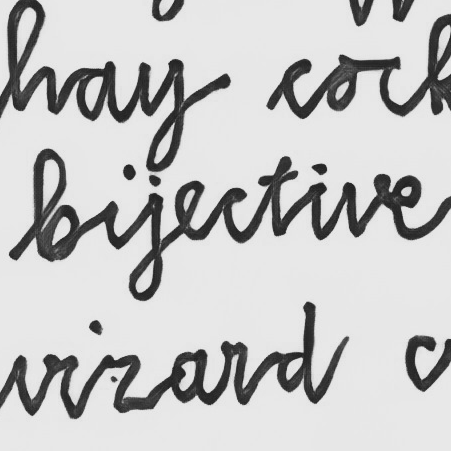 hay cock
bijective
wizard